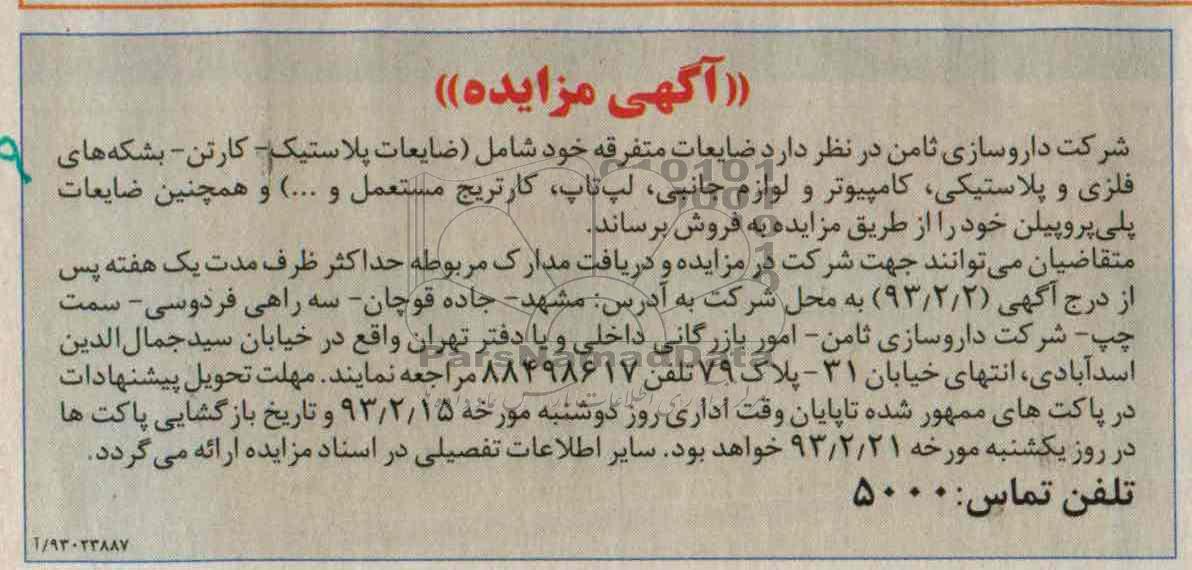 ((آگهی مزایده))
شرکت داروسازی ثامن در نظر دارد ضایعات متفرقه خود شامل (ضایعات پلاستیک- کارتن- بشکه‌های
فلزی و پلاستیکی، کامپیوتر و لوازم جانبی، لپ‌تاپ، کارتریج مستعمل و ...) و همچنین ضایعات
پلی‌پروپیلن خود را از طریق مزایده به فروش برساند.
متقاضیان می‌توانند جهت شرکت در مزایده و دریافت مدارک مربوطه حداکثر ظرف مدت یک هفته پس
از درج آگهی (۹۳/۲/۲) به محل شرکت به آدرس: مشهد- جاده قوچان- سه راهی فردوسی- سمت
چپ- شرکت داروسازی ثامن- امور بازرگانی داخلی و یا دفتر تهران واقع در خیابان سیدجمال‌الدین
اسدآبادی، انتهای خیابان ۳۱ - پلاک ۷۹ تلفن ۸۸۴۹۸۶۱۷ مراجعه نمایند. مهلت تحویل پیشنهادات
در پاکت های ممهور شده تا پایان وقت اداری روز دوشنبه مورخه ۹۳/۲/۱۵ و تاریخ بازگشایی پاکت ها
در روز یکشنبه مورخه ۹۳/۲/۲۱ خواهد بود. سایر اطلاعات تفصیلی در اسناد مزایده ارائه می گردد.
تلفن تماس: ۵۰۰۰
۹۳۰۲۳۸۸۷/آ
ParsNamadData